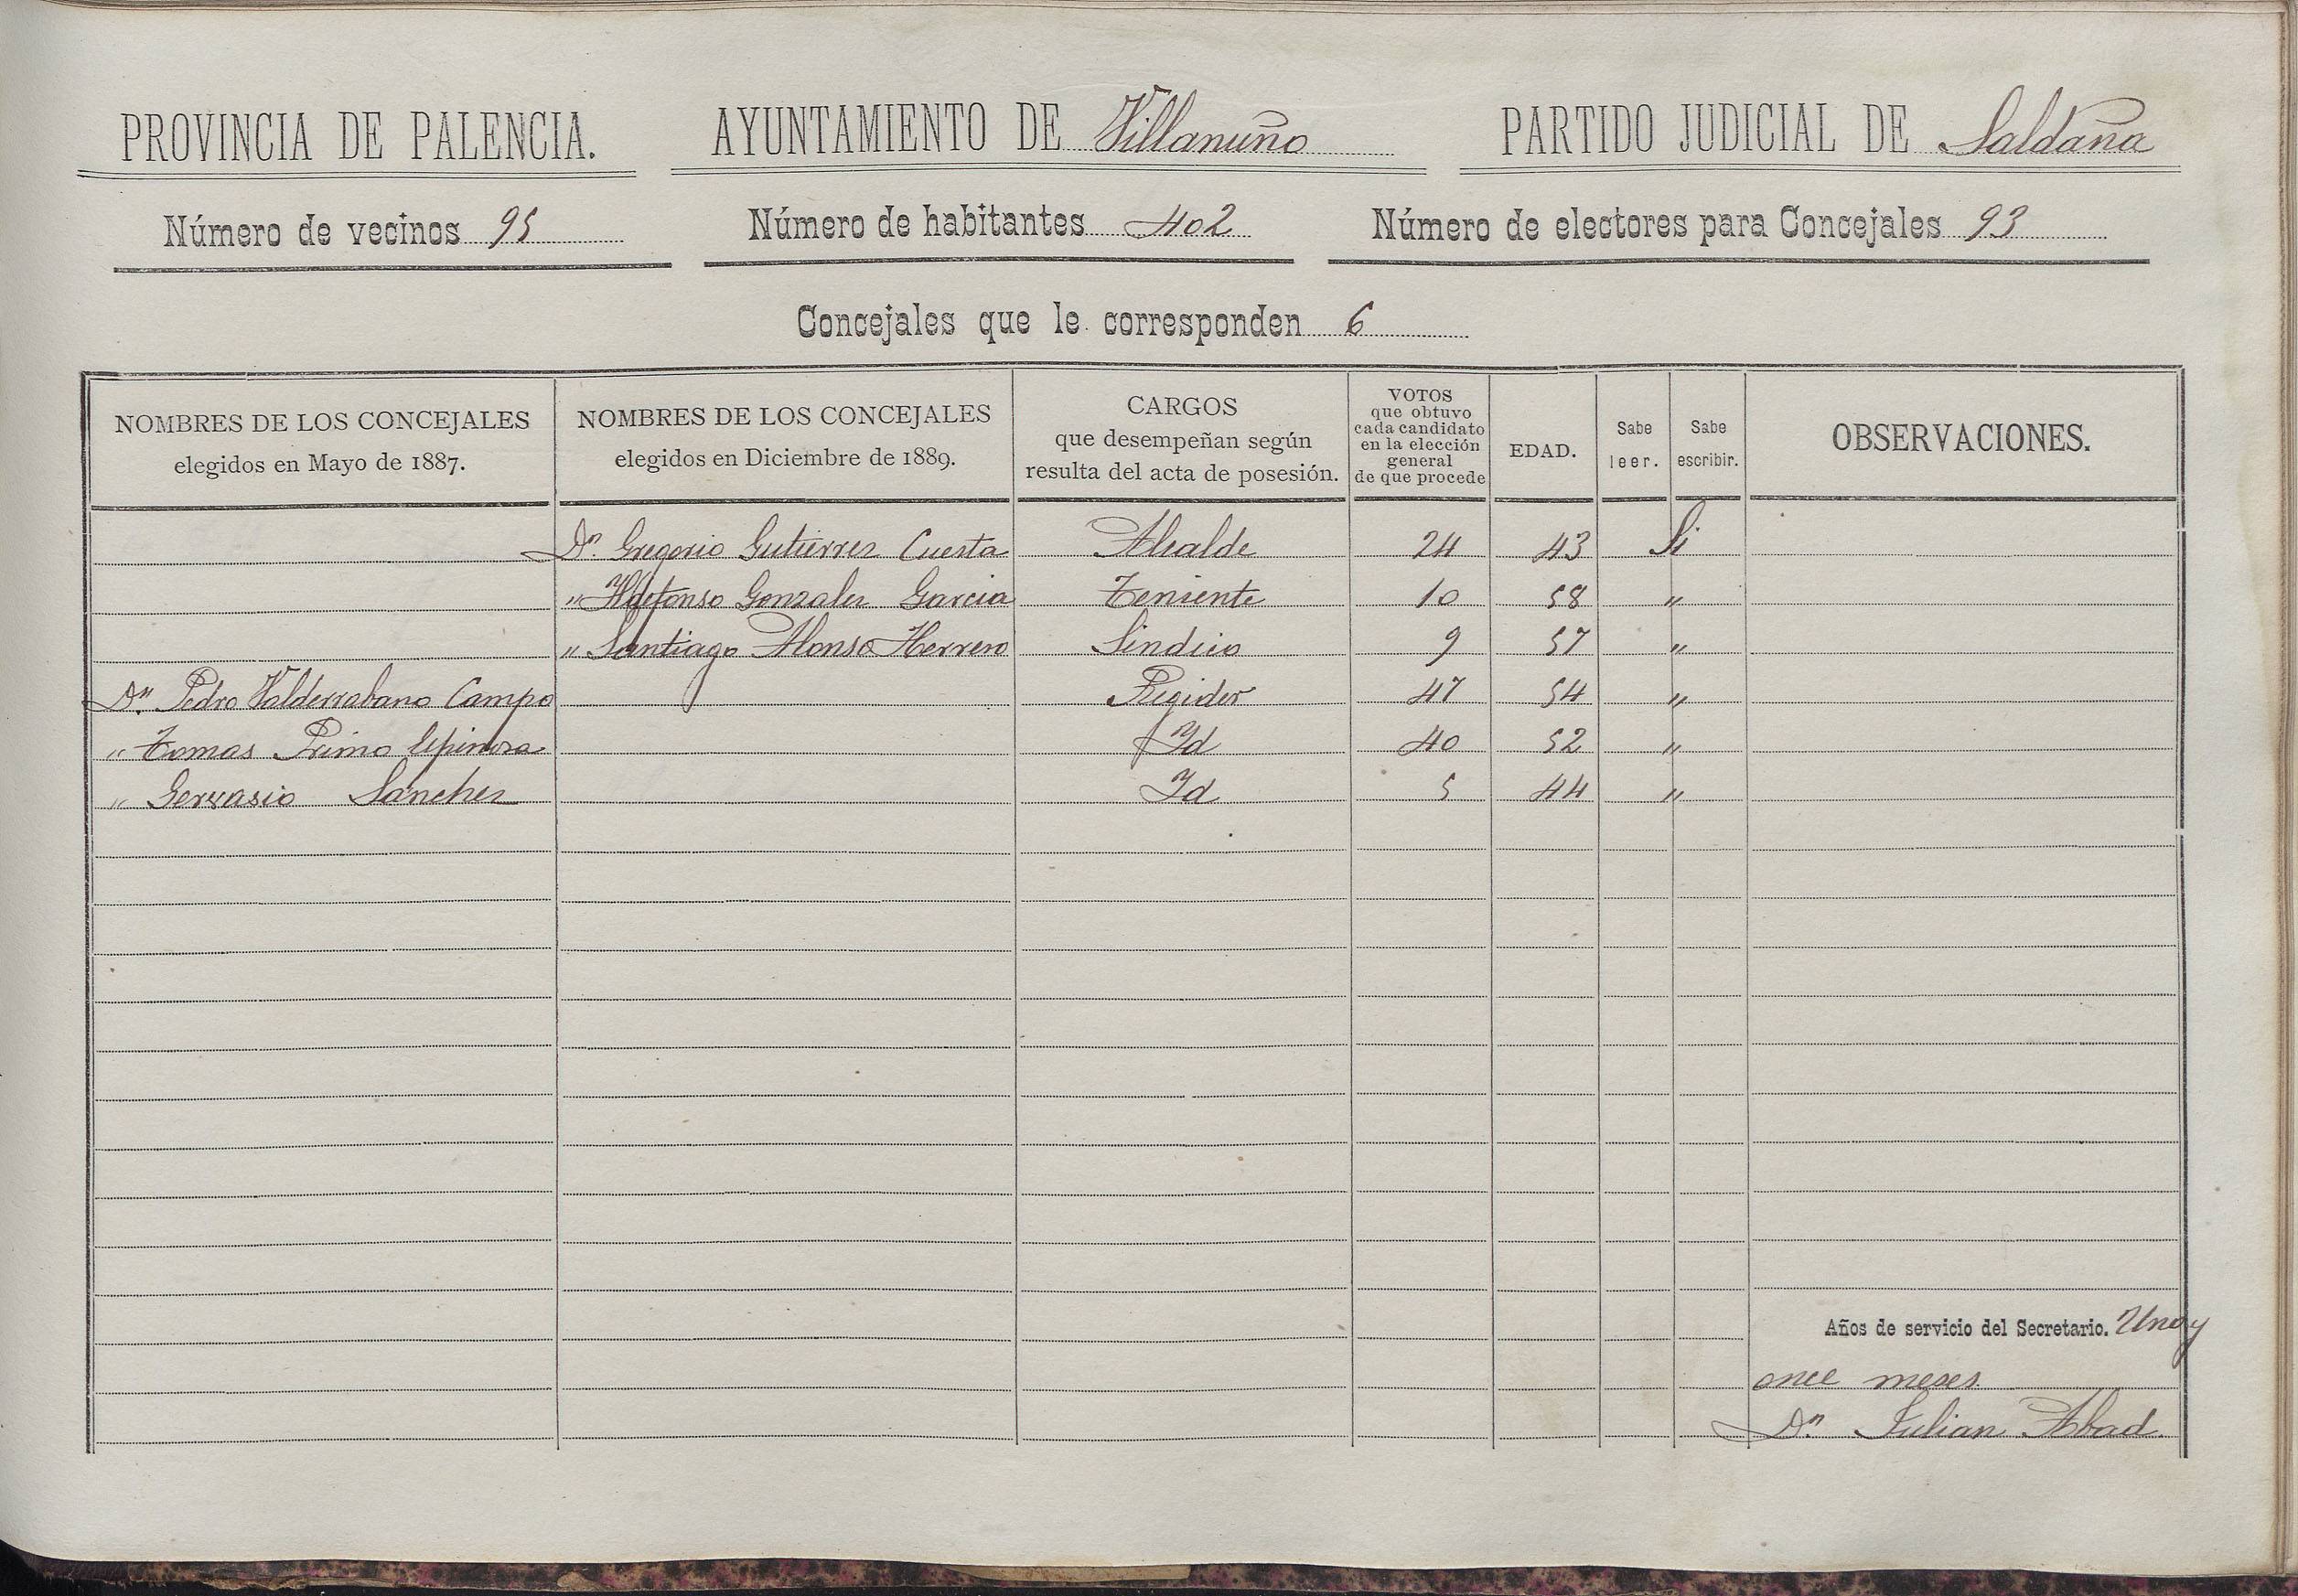 PROVINCIA DE PALENCIA. AYUNTAMIENTO DE Villanuño PARTIDO JUDICIAL DE Saldaña
Número de vecinos 95 Número de habitantes 402 Número de electores para Concejales 93
Concejales que le corresponden 6
NOMBRES DE LOS CONCEJALES
elegidos en Mayo de 1887.
NOMBRES DE LOS CONCEJALES
elegidos en Diciembre de 1889.
CARGOS
que desempeñan según
resulta del acta de posesión.
VOTOS
que obtuvo
cada candidato
en la elección
general
de que procede
EDAD.
Sabe
leer.
Sabe
escribir.
OBSERVACIONES.
Dn. Gregorio Gutierrez Cuesta Alcalde 24 43 Si
" Ildefonso Gonzalez Garcia Teniente 10 58 "
" Santiago Alonso Herrero Sindico 9 57 "
Dn. Pedro Valderrabano Campo Regidor 47 54 "
" Tomas Primo Espinosa Id 40 52 "
" Gervasio Sanchez Id 5 44 "
Años de servicio del Secretario. Uno y
once meses.
Dn. Julian Abad